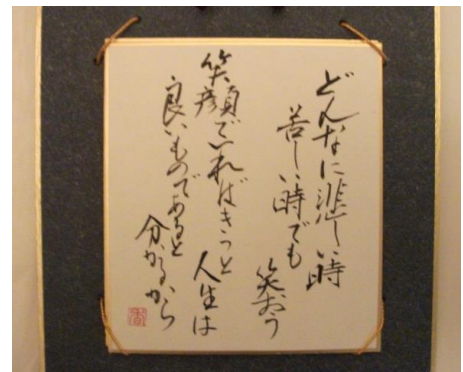 どんなに悲しい時
苦しい時でも
笑おう
笑顔でいればきっと
人生は
良いものであると
分かるから